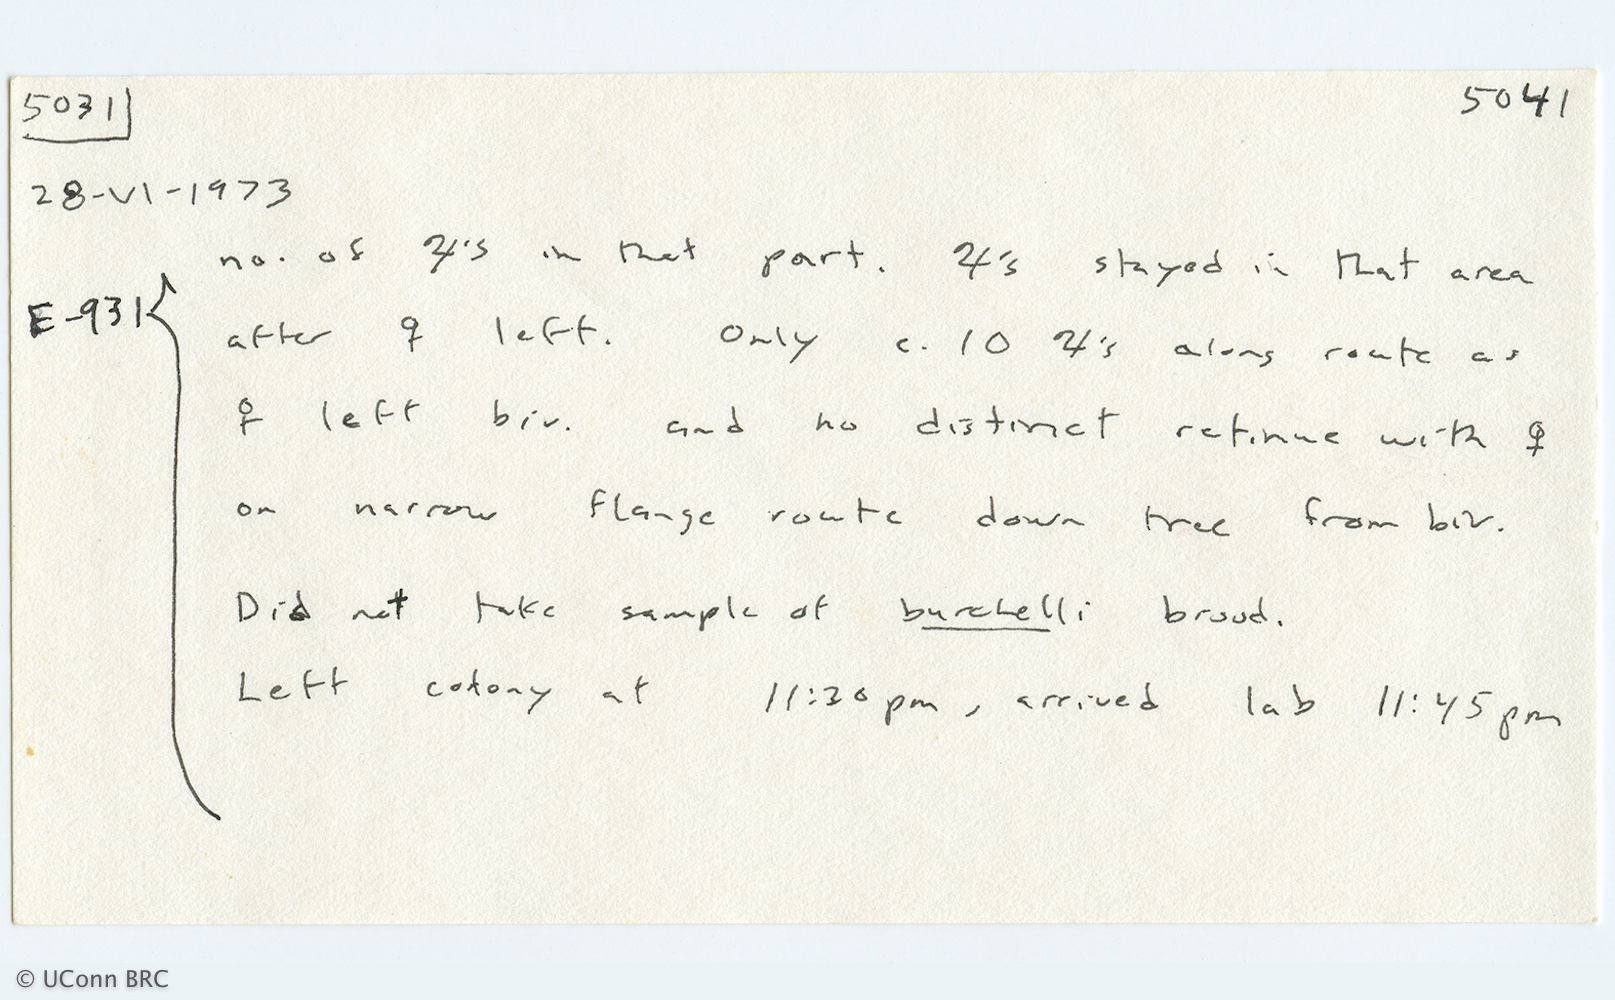 5031 5041
28-VI-1973
no. of ♃'s in that part. ♃'s stayed in that area
E-931 { after ♀ left. Only c. 10 ♃'s along route as
♀ left biv. and no distinct retinue with ♀
on narrow flange route down tree from biv.
Did not take sample of burchelli brood.
Left colony at 11:30 pm, arrived lab 11:45 pm
© UConn BRC